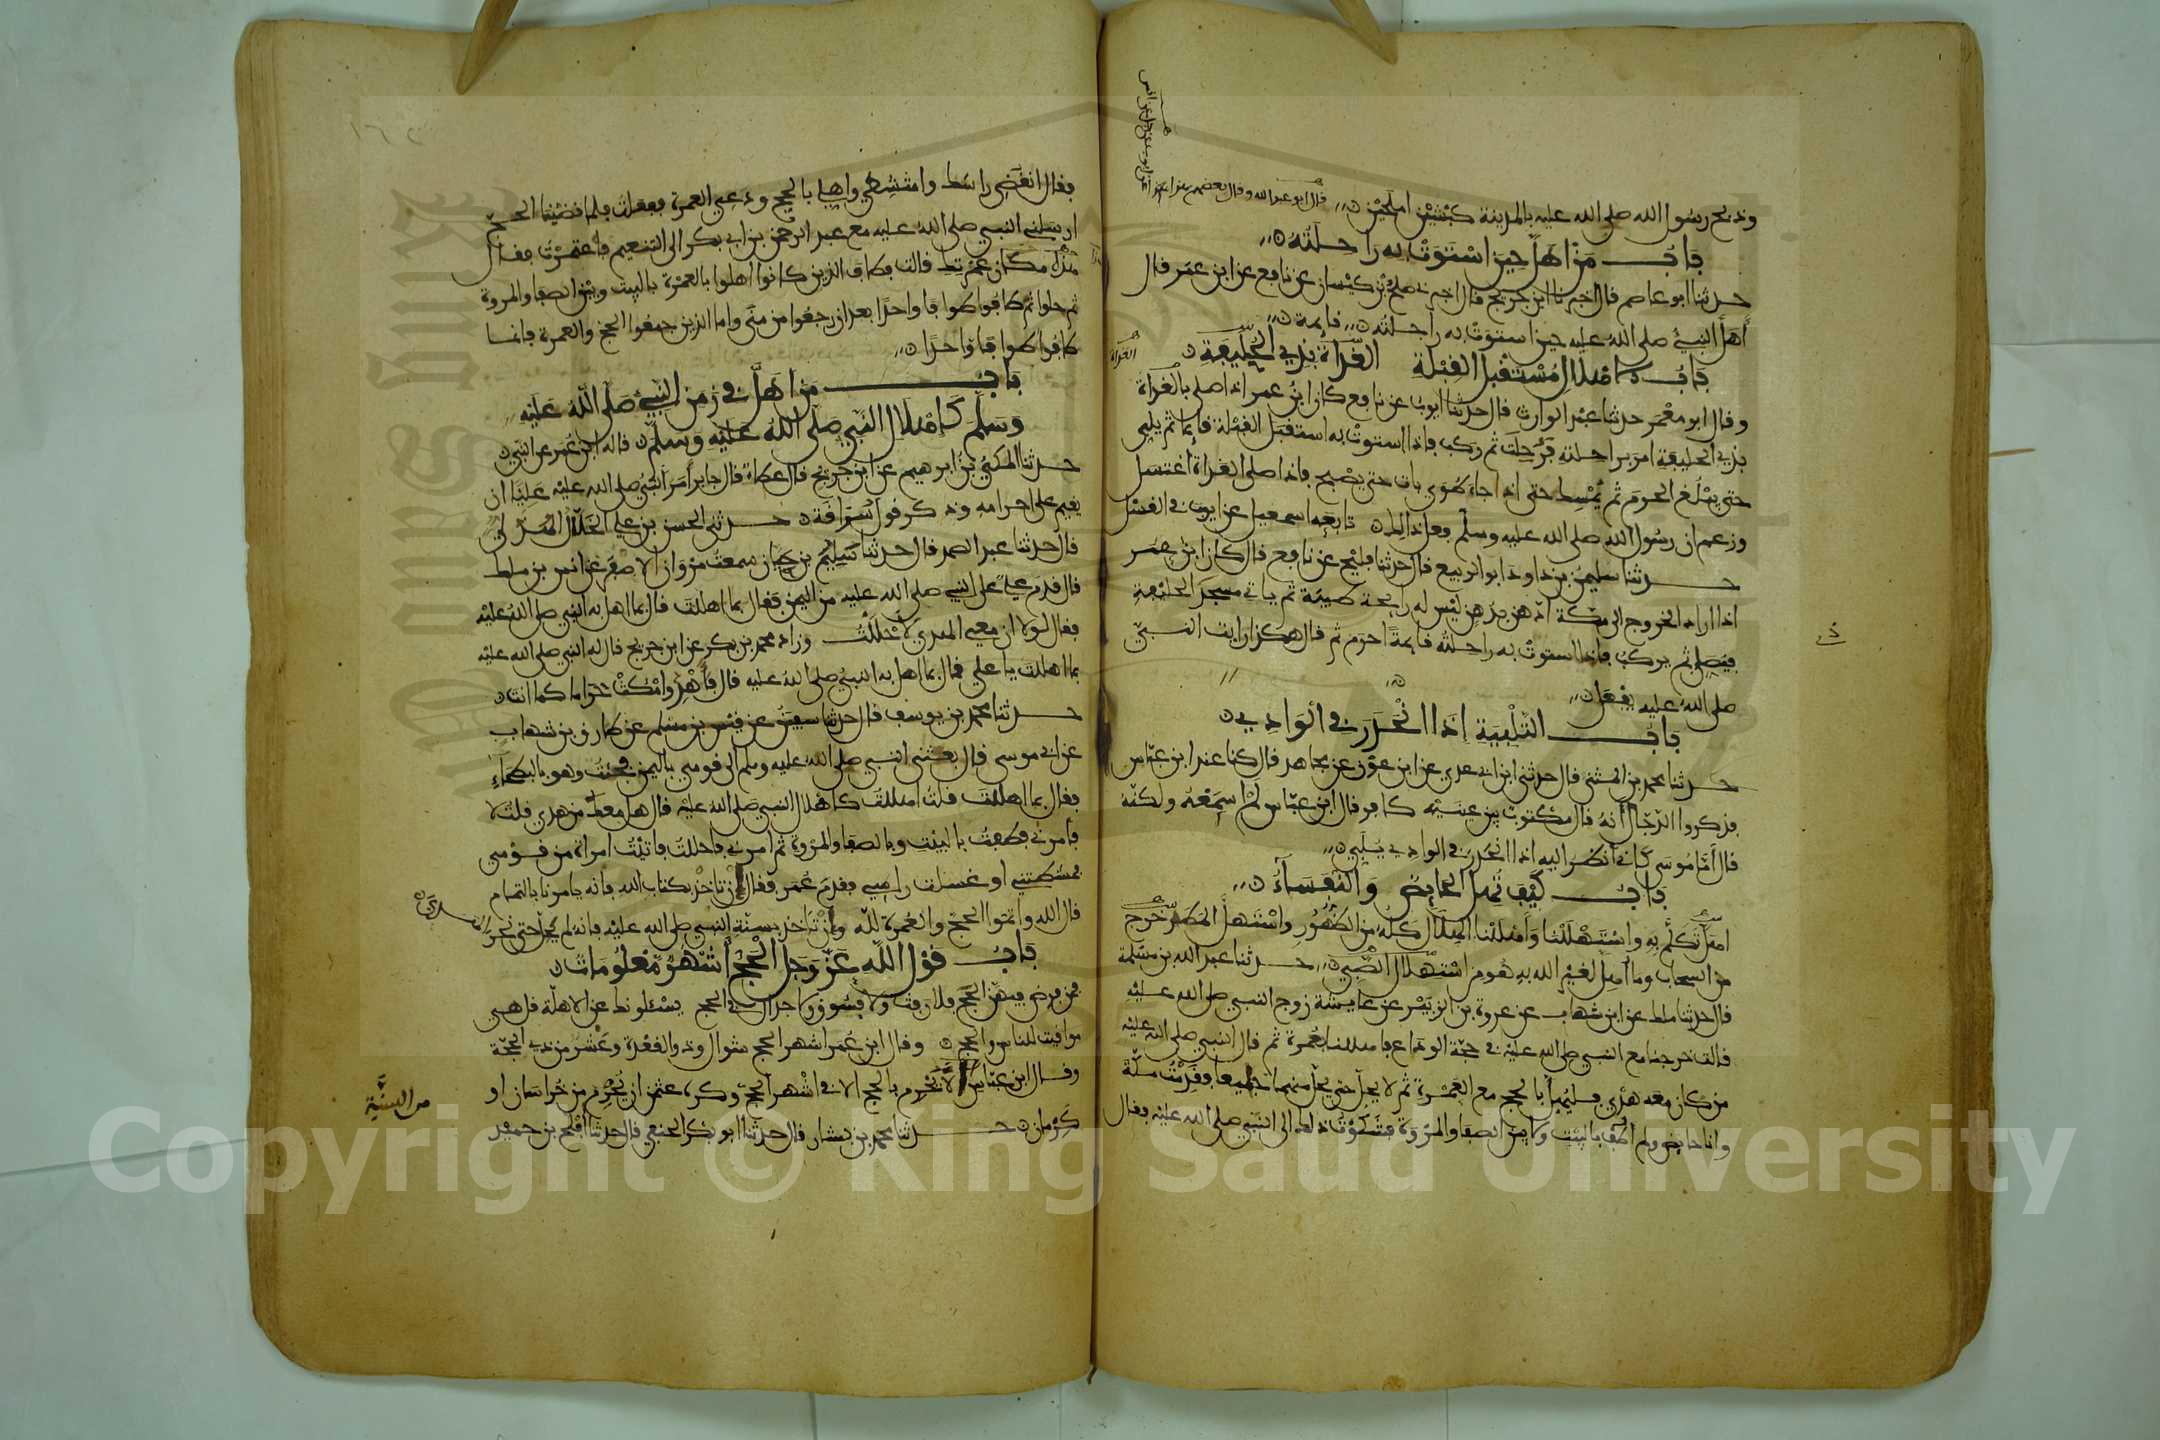 وذبح رسول الله صلى الله عليه بالمدينة كبشين املحين قال ابو عبد الله وقال بعضهم
باب من اهل حين استوت به راحلته
حدثنا ابو عاصم قال اخبرنا ابن جريج قال اخبرني صلح بن كيسان عن نافع عن ابن عمر قال
أهل النبي صلى الله عليه حين استوت به راحلته قايمة
باب الاهلال مستقبل القبلة الغداة بذي الحليفة
وقال ابو معمر حدثنا عبد الوارث قال حدثنا ايوب عن نافع كان ابن عمر اذا صلى بالغداة
بذي الحليفة امر براحلته فرحلت ثم ركب فاذا استوت به استقبل القبلة قايما ثم يلبي
حتى يبلغ الحرم ثم يمسك حتى اذا جاء طوى بات حتى يصبح فاذا صلى الغداة اغتسل
وزعم ان رسول الله صلى الله عليه وسلم فعل ذلك تابعه اسمعيل عن ايوب في الغسل
حدثنا سليمن بن داود ابو الربيع قال حدثنا فليح عن نافع قال كان ابن عمر
اذا اراد الخروج الى مكة ادهن بدهن ليس له رايحة طيبة ثم ياتي مسجد الحليفة
فيصلي ثم يركب فاذا استوت به راحلته قايمة احرم ثم قال هكذا رايت النبي
صلى الله عليه يفعل
باب التلبية اذا انحدر في الوادي
حدثنا محمد بن المثنى قال حدثني ابن ابي عدي عن ابن عون عن مجاهد قال كنا عند ابن عباس
فذكروا الدجال أنه قال مكتوب بين عينيه كافر قال ابن عباس لم اسمعه ولكنه
قال أما موسى كاني انظر اليه اذا انحدر في الوادي يلبي
باب كيف تهل الحايض والنفساء
اهل تكلم به واستهللنا وأهللنا الهلال كله من الظهور واستهل المطر خرج
من السحاب وما اهل لغير الله به هو من استهلال الصبي حدثنا عبد الله بن مسلمة
قال حدثنا ملك عن ابن شهاب عن عروة بن الزبير عن عايشة زوج النبي صلى الله عليه
قالت خرجنا مع النبي صلى الله عليه في حجة الوداع فاهللنا بعمرة ثم قال النبي صلى الله عليه
من كان معه هدي فليهل بالحج مع العمرة ثم لا يحل حتى يحل منهما جميعا فقدمت مكة
وانا حايض ولم اطف بالبيت ولا بين الصفا والمروة فشكوت ذلك الى النبي صلى الله عليه فقال
الغداة
فقال انقضي راسك وامتشطي واهلي بالحج ودعي العمرة ففعلت فلما قضينا الحج
ارسلني النبي صلى الله عليه مع عبد الرحمن بن ابي بكر الى التنعيم فاعتمرت فقال
هذه مكان عمرتك قالت فطاف الذين كانوا اهلوا بالعمرة بالبيت وبين الصفا والمروة
ثم حلوا ثم طافوا طوافا واحدا بعد ان رجعوا من منى واما الذين جمعوا الحج والعمرة فانما
طافوا طوافا واحدا
باب من اهل في زمن النبي صلى الله عليه
وسلم كاهلال النبي صلى الله عليه وسلم قاله ابن عمر عن النبي
حدثنا المكي بن ابرهيم عن ابن جريج قال عطاء قال جابر أمر النبي صلى الله عليه عليا ان
يقيم على احرامه وذكر قول سراقة حدثني الحسن بن علي الخلال الهذلي
قال حدثنا عبد الصمد قال حدثنا سليم بن حيان سمعت مروان الاصفر عن انس بن ملك
قال قدم علي على النبي صلى الله عليه من اليمن فقال بما اهللت قال بما اهل به النبي صلى الله عليه
فقال لولا ان معي الهدي لأحللت وزاد محمد بن بكر عن ابن جريج قال له النبي صلى الله عليه
بما اهللت يا علي قال بما اهل به النبي صلى الله عليه قال فأهد وامكث حراما كما انت
حدثنا محمد بن يوسف قال حدثنا سفين عن قيس بن مسلم عن طارق بن شهاب
عن ابي موسى قال بعثني النبي صلى الله عليه وسلم الى قومي باليمن فجئت وهو بالبطحاء
فقال بما اهللت قلت اهللت كاهلال النبي صلى الله عليه قال هل معك من هدي قلت لا
فامرني فطفت بالبيت وبالصفا والمروة ثم امرني فاحللت فاتيت امراة من قومي
فمشطتني أو غسلت راسي فقدم عمر فقال إن ناخذ بكتاب الله فانه يامرنا بالتمام
قال الله واتموا الحج والعمرة لله وإن ناخذ بسنة النبي صلى الله عليه فانه لم يحل حتى نحر الهدي
باب قول الله عز وجل الحج أشهر معلومات
فمن فرض فيهن الحج فلا رفث ولا فسوق ولا جدال في الحج يسئلونك عن الاهلة قل هي
مواقيت للناس والحج وقال ابن عمر اشهر الحج شوال وذو القعدة وعشر من ذي الحجة
وقال ابن عباس من السنة
الا يحرم بالحج الا في اشهر الحج وكره عثمن ان يحرم من خراسان او
كرمان حدثنا محمد بن بشار قال حدثنا ابو بكر الحنفي قال حدثنا أفلح بن حميد
Copyright © King Saud University